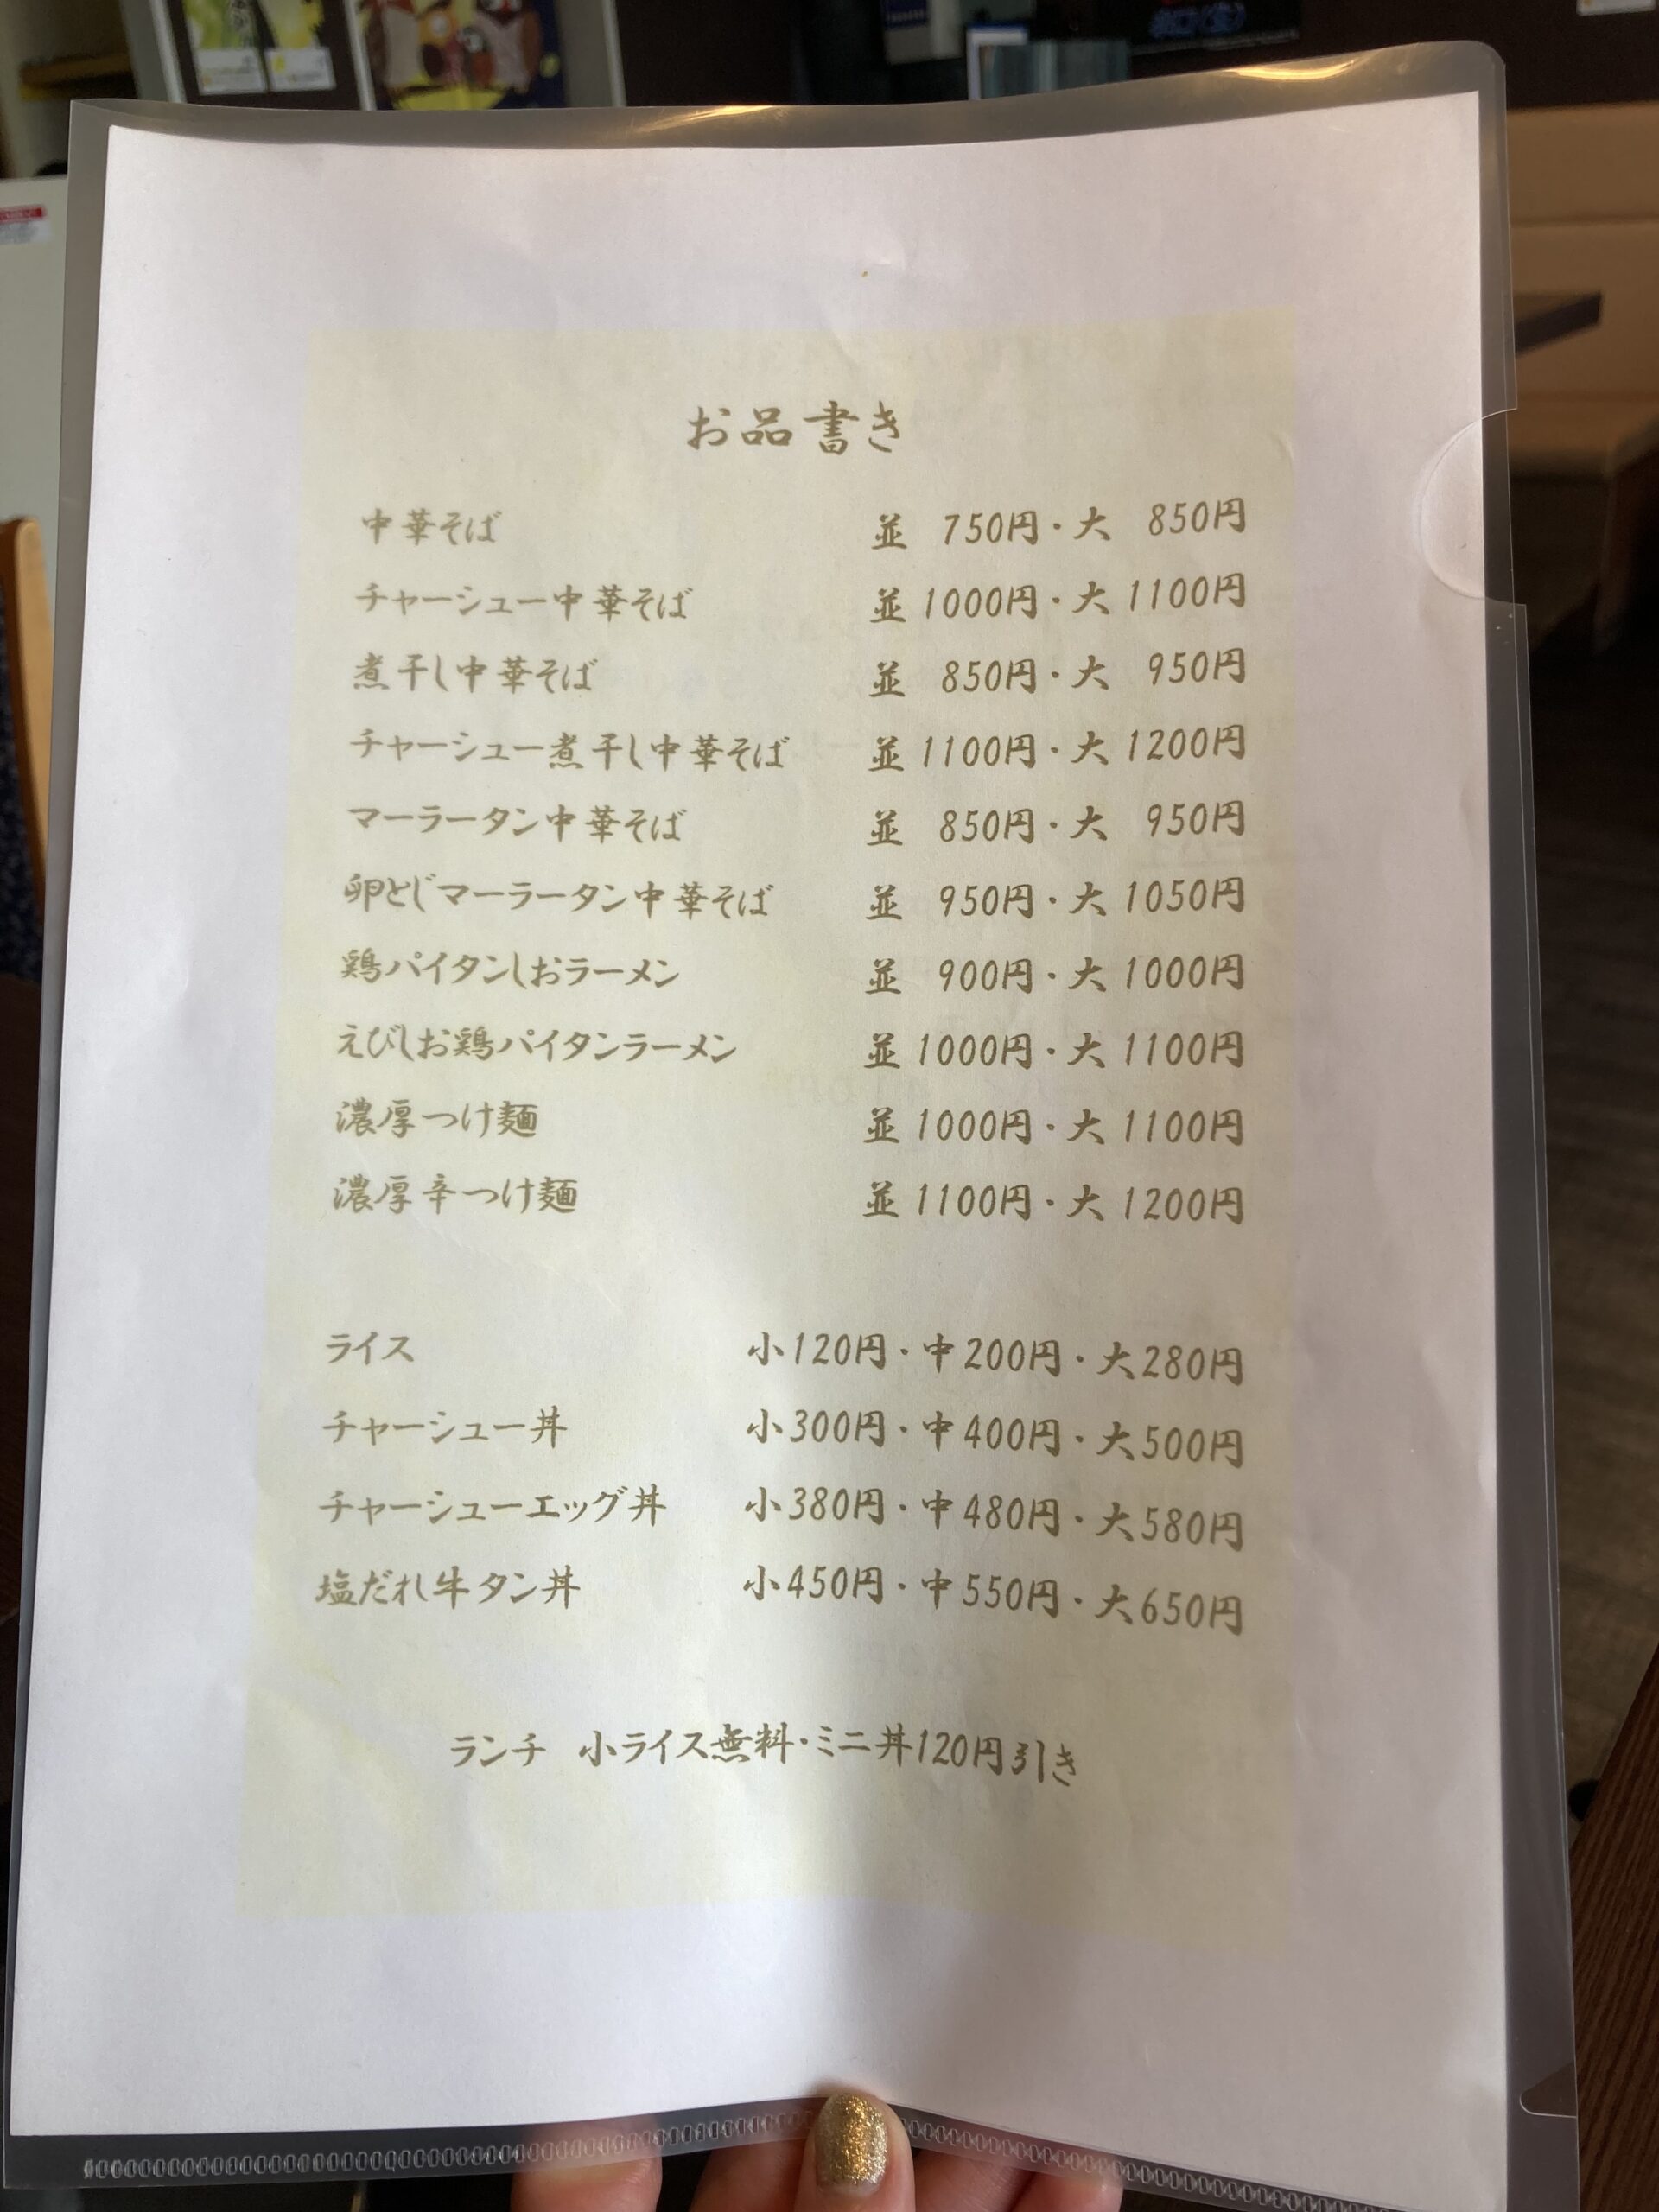 お品書き
中華そば 並 750円・大 850円
チャーシュー中華そば 並1000円・大1100円
煮干し中華そば 並 850円・大 950円
チャーシュー煮干し中華そば 並1100円・大1200円
マーラータン中華そば 並 850円・大 950円
卵とじマーラータン中華そば 並 950円・大1050円
鶏パイタンしおラーメン 並 900円・大1000円
えびしお鶏パイタンラーメン 並1000円・大1100円
濃厚つけ麺 並1000円・大1100円
濃厚辛つけ麺 並1100円・大1200円
ライス 小120円・中200円・大280円
チャーシュー丼 小300円・中400円・大500円
チャーシューエッグ丼 小380円・中480円・大580円
塩だれ牛タン丼 小450円・中550円・大650円
ランチ 小ライス無料・ミニ丼120円引き